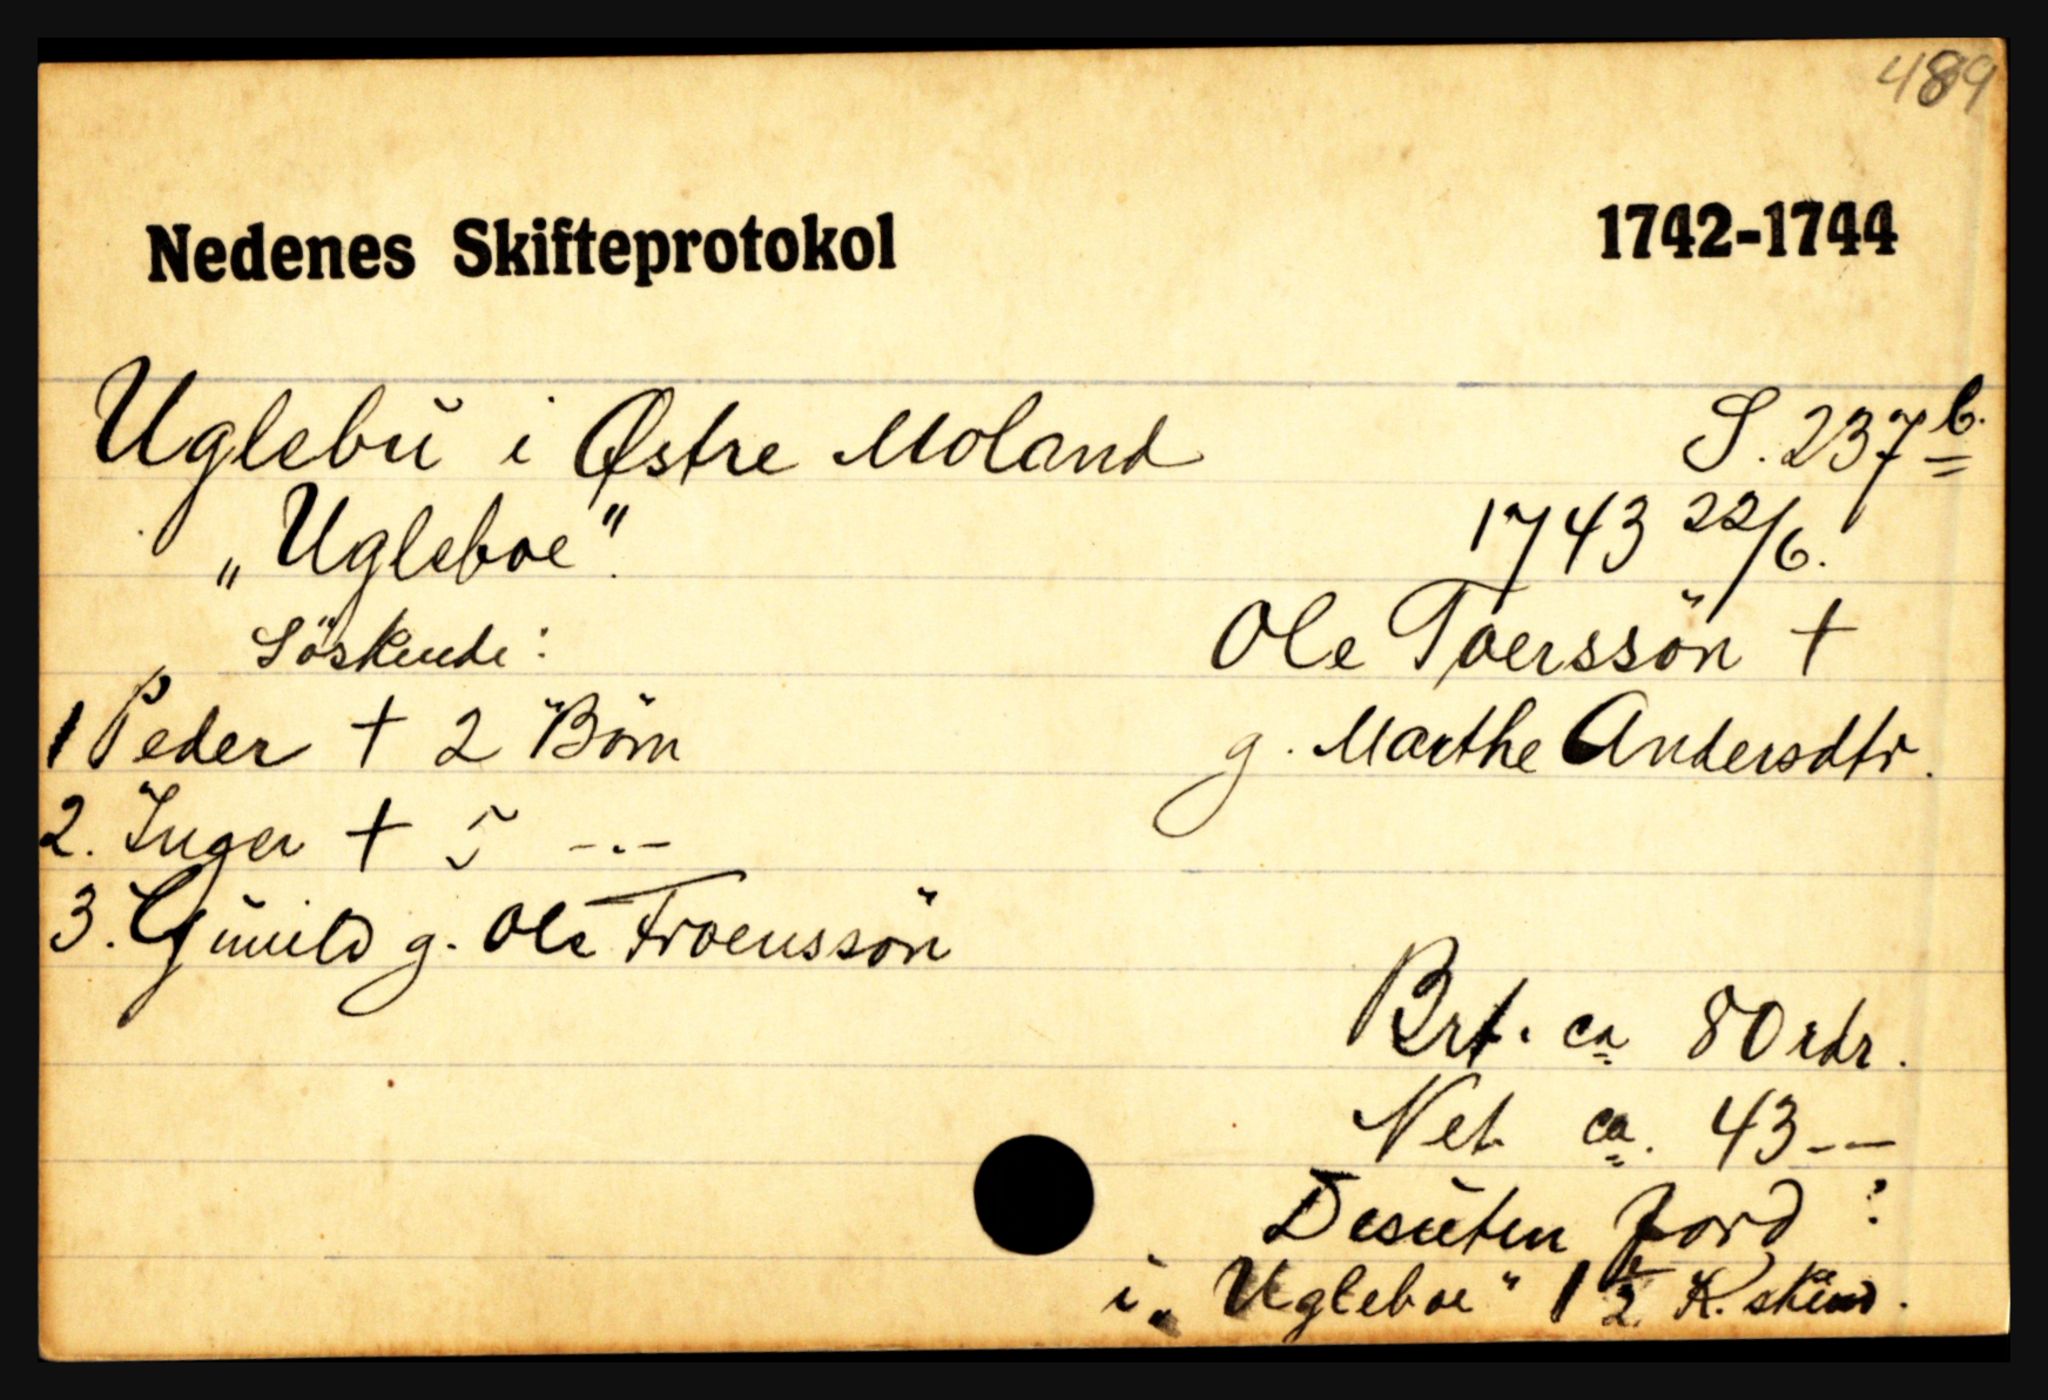 489
Nedenes Skifteprotokol 1742-1744
Uglebu i Østre Moland S. 237 b.
„Ugleboe". 1743 22/6.
Söskende: Ole Toerssön †
1 Peder † 2 Börn g. Marthe Andersdtr.
2. Inger † 5 -.-
3. Gunild g. Ole Troenssön
Brt. ca 80 rdr.
Net ca. 43 --
Desuten Jord :
i „Ugleboe" 1 1/2 K. skind.